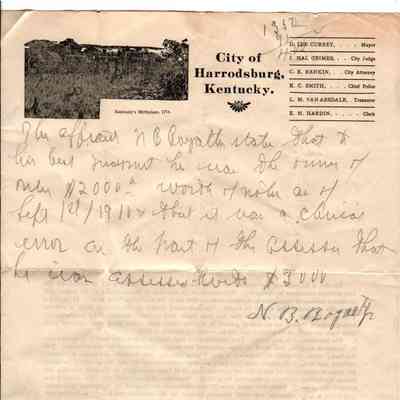 1912
City of
Harrodsburg,
Kentucky.
Kentucky's Birthplace, 1774.
D. LEE CURREY, . . . . Mayor
J. HAL GRIMES, . . City Judge
C. E. RANKIN, . City Attorney
K. C. SMITH, . . Chief Police
L. M. VANARSDALE, Treasurer
E. H. HARDIN, . . . . . Clerk
The affiant N B Bogatt state that to
his best he was the owner of
only $2000 worth of notes as of
Sept 1st/1911 & that it was a clerical
error on the part of the assessor that
he was assessed with $3000
N. B. Bogatt